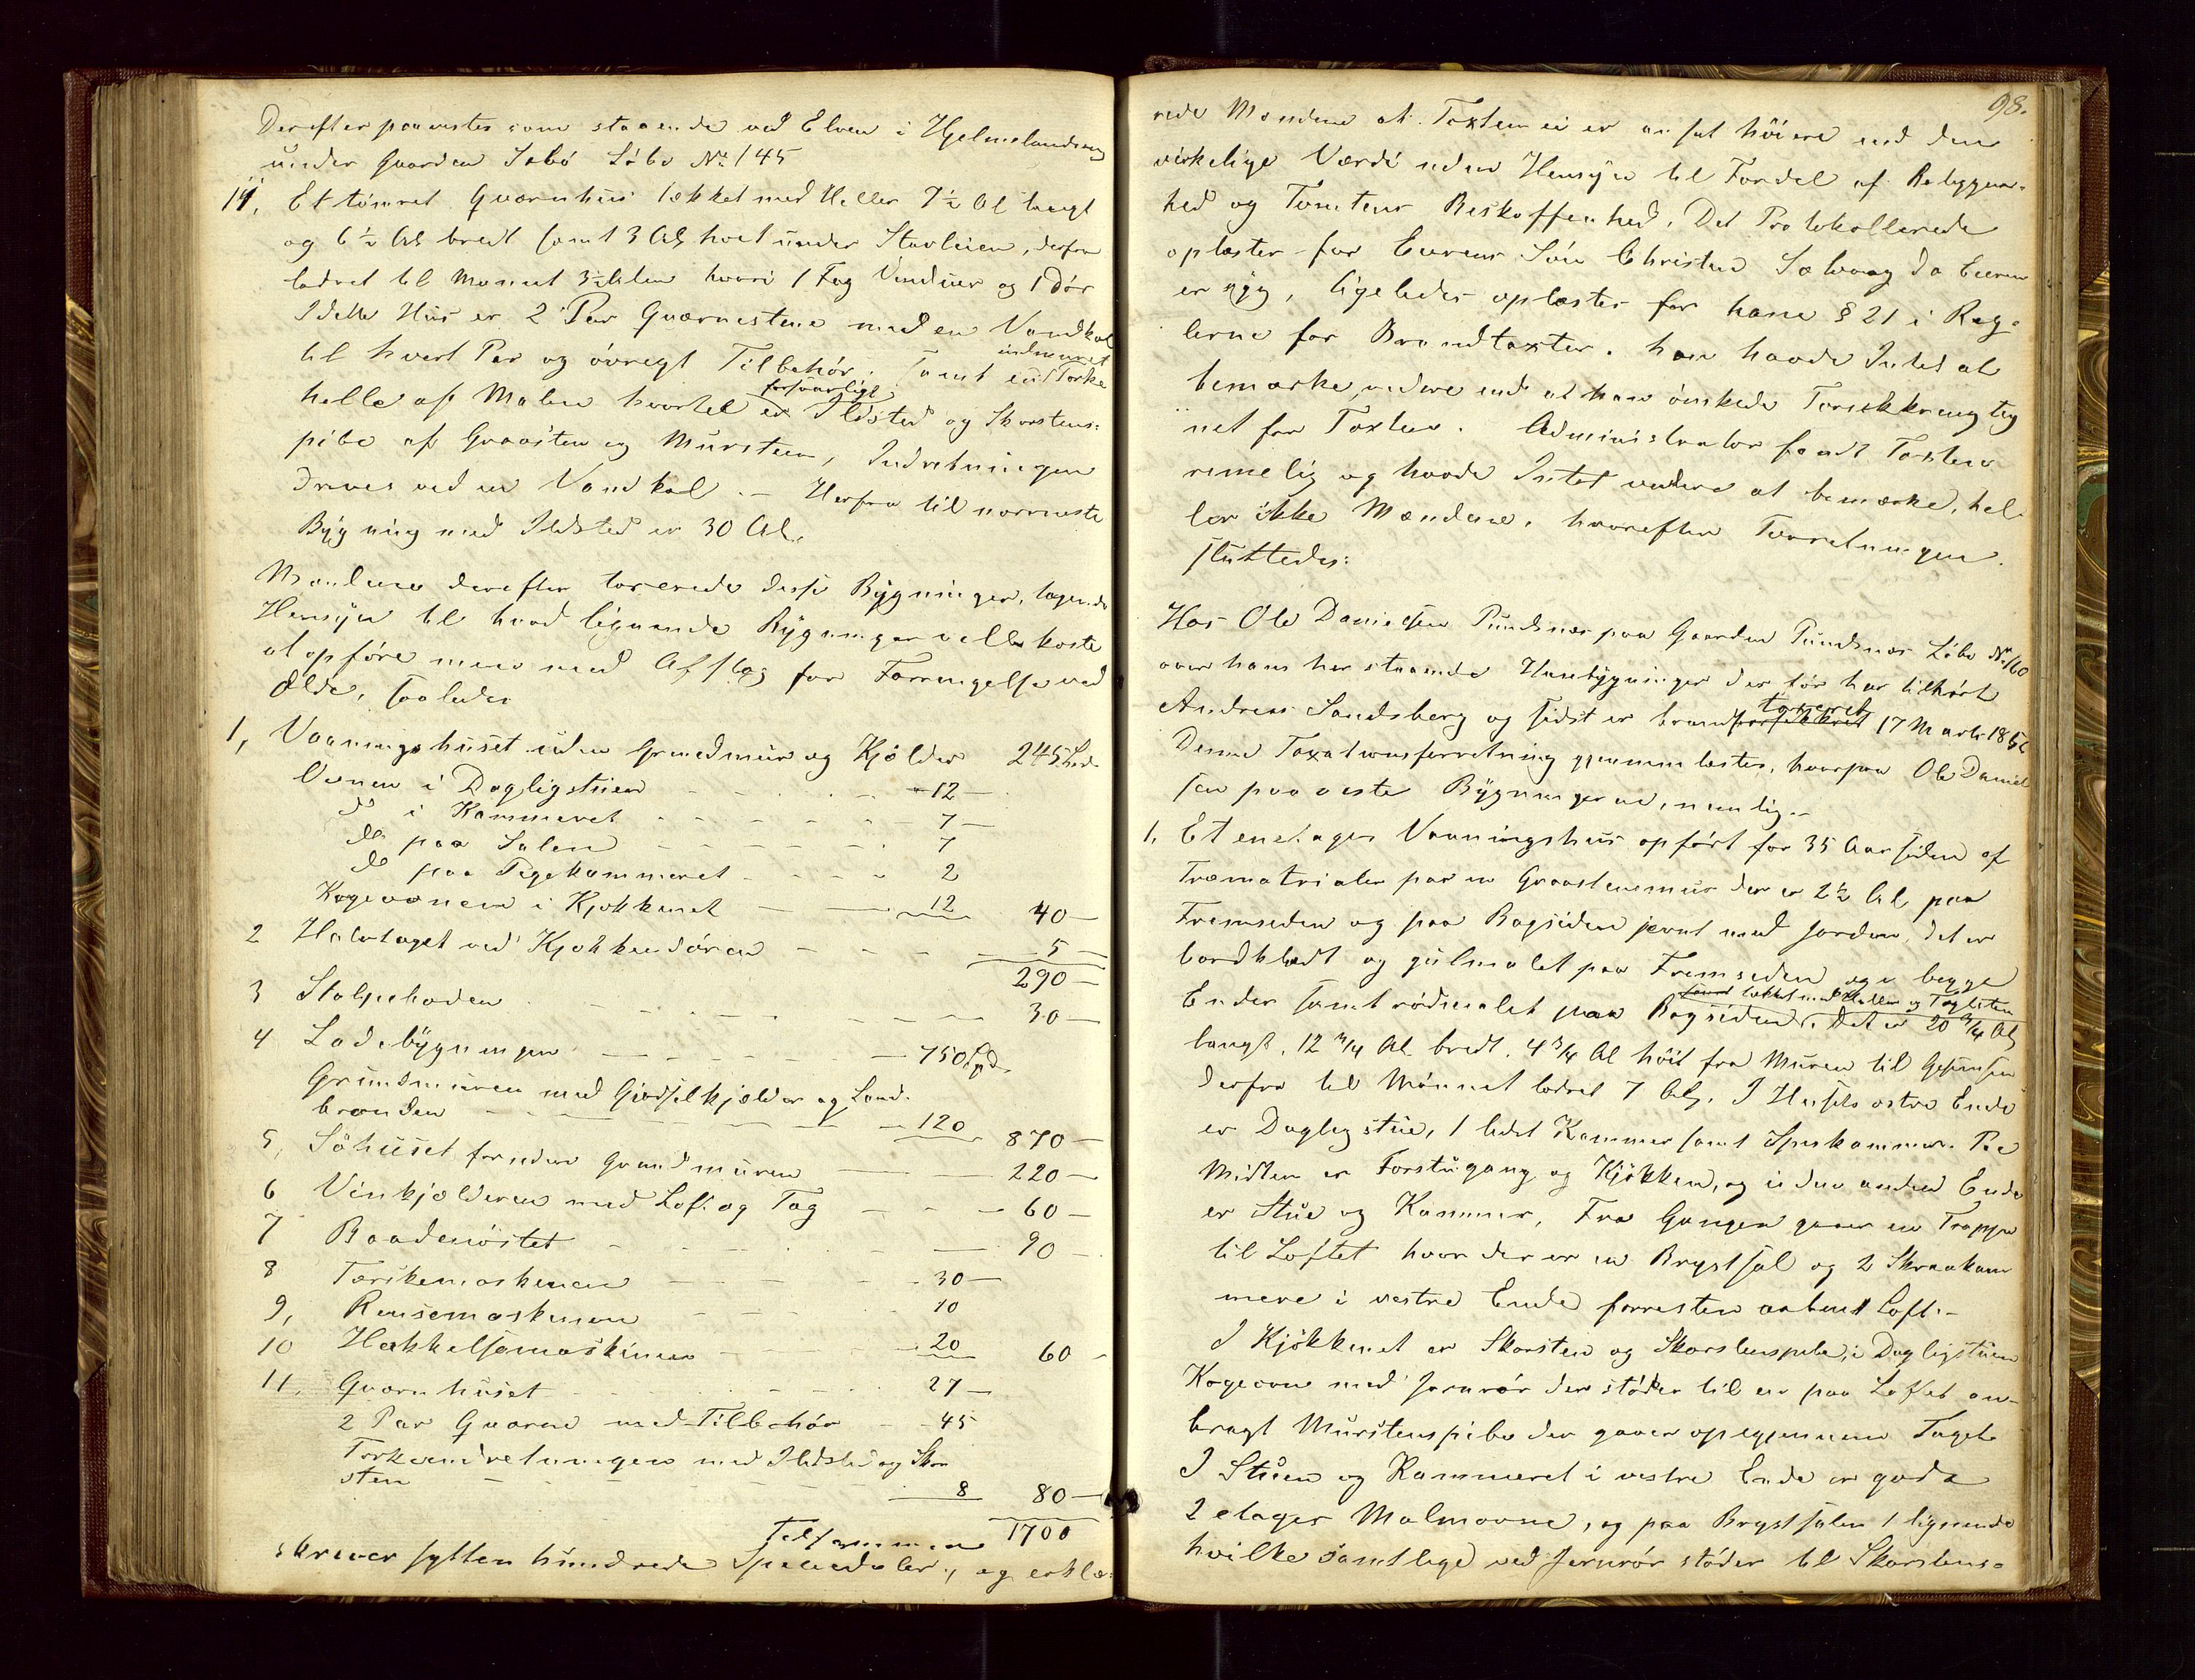 Derefter paavistes som staaende ved Elven i Hjelmelandsvaag
under Gaarden Sæbö Löbe No 145
11, Et tömret Quærnhus tækket med Heller 7 1/2 Al langt
og 6 1/2 Al bredt samt 3 Al höit under Stavleien, derfra
lodret til Mönnet 3 1/2 Alen hvori 1 Fag Vinduer og 1 Dör
I dette Hus er 2 Par Quærnestene med en Vandkal
til hvert Par og övrigt Tilbehör. Samt en indmuret Törke
helle af Malm hvortil er forsvarligt Ildsted og Skorstens-
pibe af Graasten og Mursten, Indretningen
drives ved en Vandkal. – Herfra til nærmeste
Bygning med Ildsted er 30 Al.
Mændene derefter taxerede disse Bygninger, tagende
Hensyn til hvad lignende Bygninger ville koste
at opföre men med Afslag for Forringelse ved
Ælde, saaledes
1, Vaaningshuset uden Grundmur og Kjelder 245 Spd.
Ovnen i Dagligstuen – 12 –
do i Kammeret – 7 –
do paa Salen – 7
do paa Pigekammeret – 2
Kogeovnen i Kjøkkenet – 12 40 –
2 Halvtaget ved Kjøkkendören – 5 –
290 –
3 Stolpeboden – 30 –
4 Ladebygningen – 750 Spd.
Grundmuren med Gjödselkjelder og Land-
brønden – 120 870 –
5, Söhuset foruden Grundmuren – 220 –
6 Vinkjælderen med Loft og Tag – 60 –
7 Baadenöstet – 90 –
8 Tærskemaskinen – 30 –
9, Rensemaskinen 10
10 Hakkelsemaskinen – 20 60 –
11, Quærnhuset – 27 –
2 Par Quærne med Tilbehör – 45
Tørkeindretningen med Ildsted og Skor
sten – 8 80 –
Tilsammen 1700
skriver sytten hundrede Speciedaler, og erklæ-
98.
rede Mændene at Taxten ei er ansat höiere end den
virkelige Værdi uden Hensyn til Fordel af Beliggen-
hed og Tomtens Beskaffenhed. Det Protokollerede
oplæstes for Eierens Sön Christen da Eieren
er syg, ligeledes oplæstes for ham § 21 i Reg-
lerne for Brandtaxter. han havde Intet at
bemærke, videre end at han önskede Forsikkring teg
net for Taxten. Administrator fandt Taxten
rimelig og havde Intet videre at bemærke, hel-
ler ikke Mændene, hvorefter Forretningen
sluttedes:
Hos Ole Danielsen Pundsnes paa Gaarden Pundsnes Löbe No 160
over hans her staaende Husebygninger der för har tilhört
Andreas Sandsberg og sidst er brandforsikkret taxeret 17 Marts
Denne Taxationsforretning gjennemlæstes, hvorpaa Ole Daniel
sen paaviste Bygningerne, nemlig. –
1, Et enetages Vaaningshus opfört for 35 Aar siden af
Træmatrialer paa en Graastensmur der er 2 1/2 Al, paa
Fremsiden og paa Bagsiden jevnt med Jorden, det er
bordklædt og gulmalet paa Fremsiden og i begge
Ender samt rödmalet paa Bagsiden samt tækket med Heller og Taglsten. Det er 20 3/4 Al
langt, 12 3/4 Al bredt. 4 3/4 Al höit fra Muren til Gesimsen
derfra til Mönnet lodret 7 Al. I Husets östre Ende
er Dagligstue, 1 lidet Kammer samt Spiskammer. Paa
Midten er Forstugang og Kjökken, og i den anden Ende
er Stue og Kammer, Fra Gangen gaaer en Trappe
til Loftet hvor der er en Brystsal og 2 Skraakam
mere i vestre Ende forresten aabent Loft. –
I Kjökkenet er Skorsten og Skorstenspibe, i Dagligstuen
Kogeovne med Jernrör der stöder til en paa Loftet an-
bragt Murstenspibe der gaaer op igjennem Taget
I Stuen og Kammeret i vestre Ende er gode
2 etages Malmovne, og paa Brystsalen 1 lignende
hvilke samtlige ved Jernrör stöder til Skorstens-